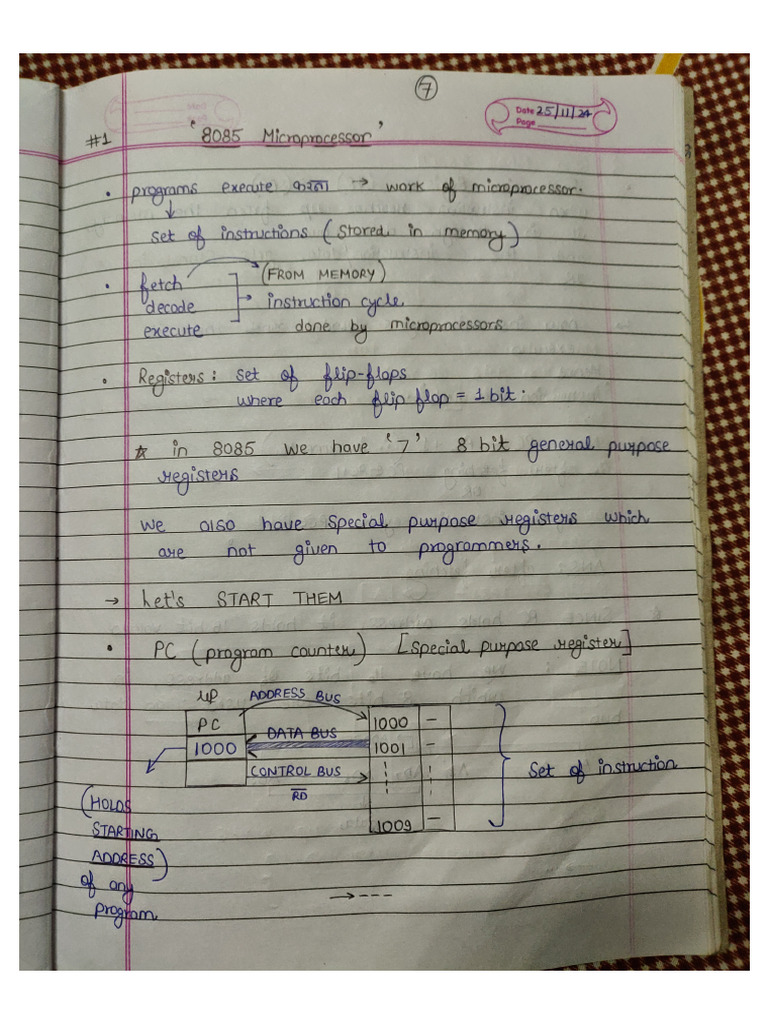 7
Date 25/11/24
Page
#1 '8085 Microprocessor'
• programs execute करना → work of microprocessor.
↓
set of instructions (stored in memory)
• fetch (FROM MEMORY)
decode → instruction cycle.
execute done by microprocessors
• Registers: set of flip-flops
where each flip flop = 1 bit.
☆ in 8085 we have '7' 8 bit general purpose
registers
we also have special purpose registers which
are not given to programmers.
→ Let's START THEM
• PC (program counter) [special purpose register]
μP ADDRESS BUS
PC 1000 –
DATA BUS
1000 1001 –
CONTROL BUS
Set of instruction
RD
1009 –
(HOLDS
STARTING
ADDRESS)
of any
program
→ ---